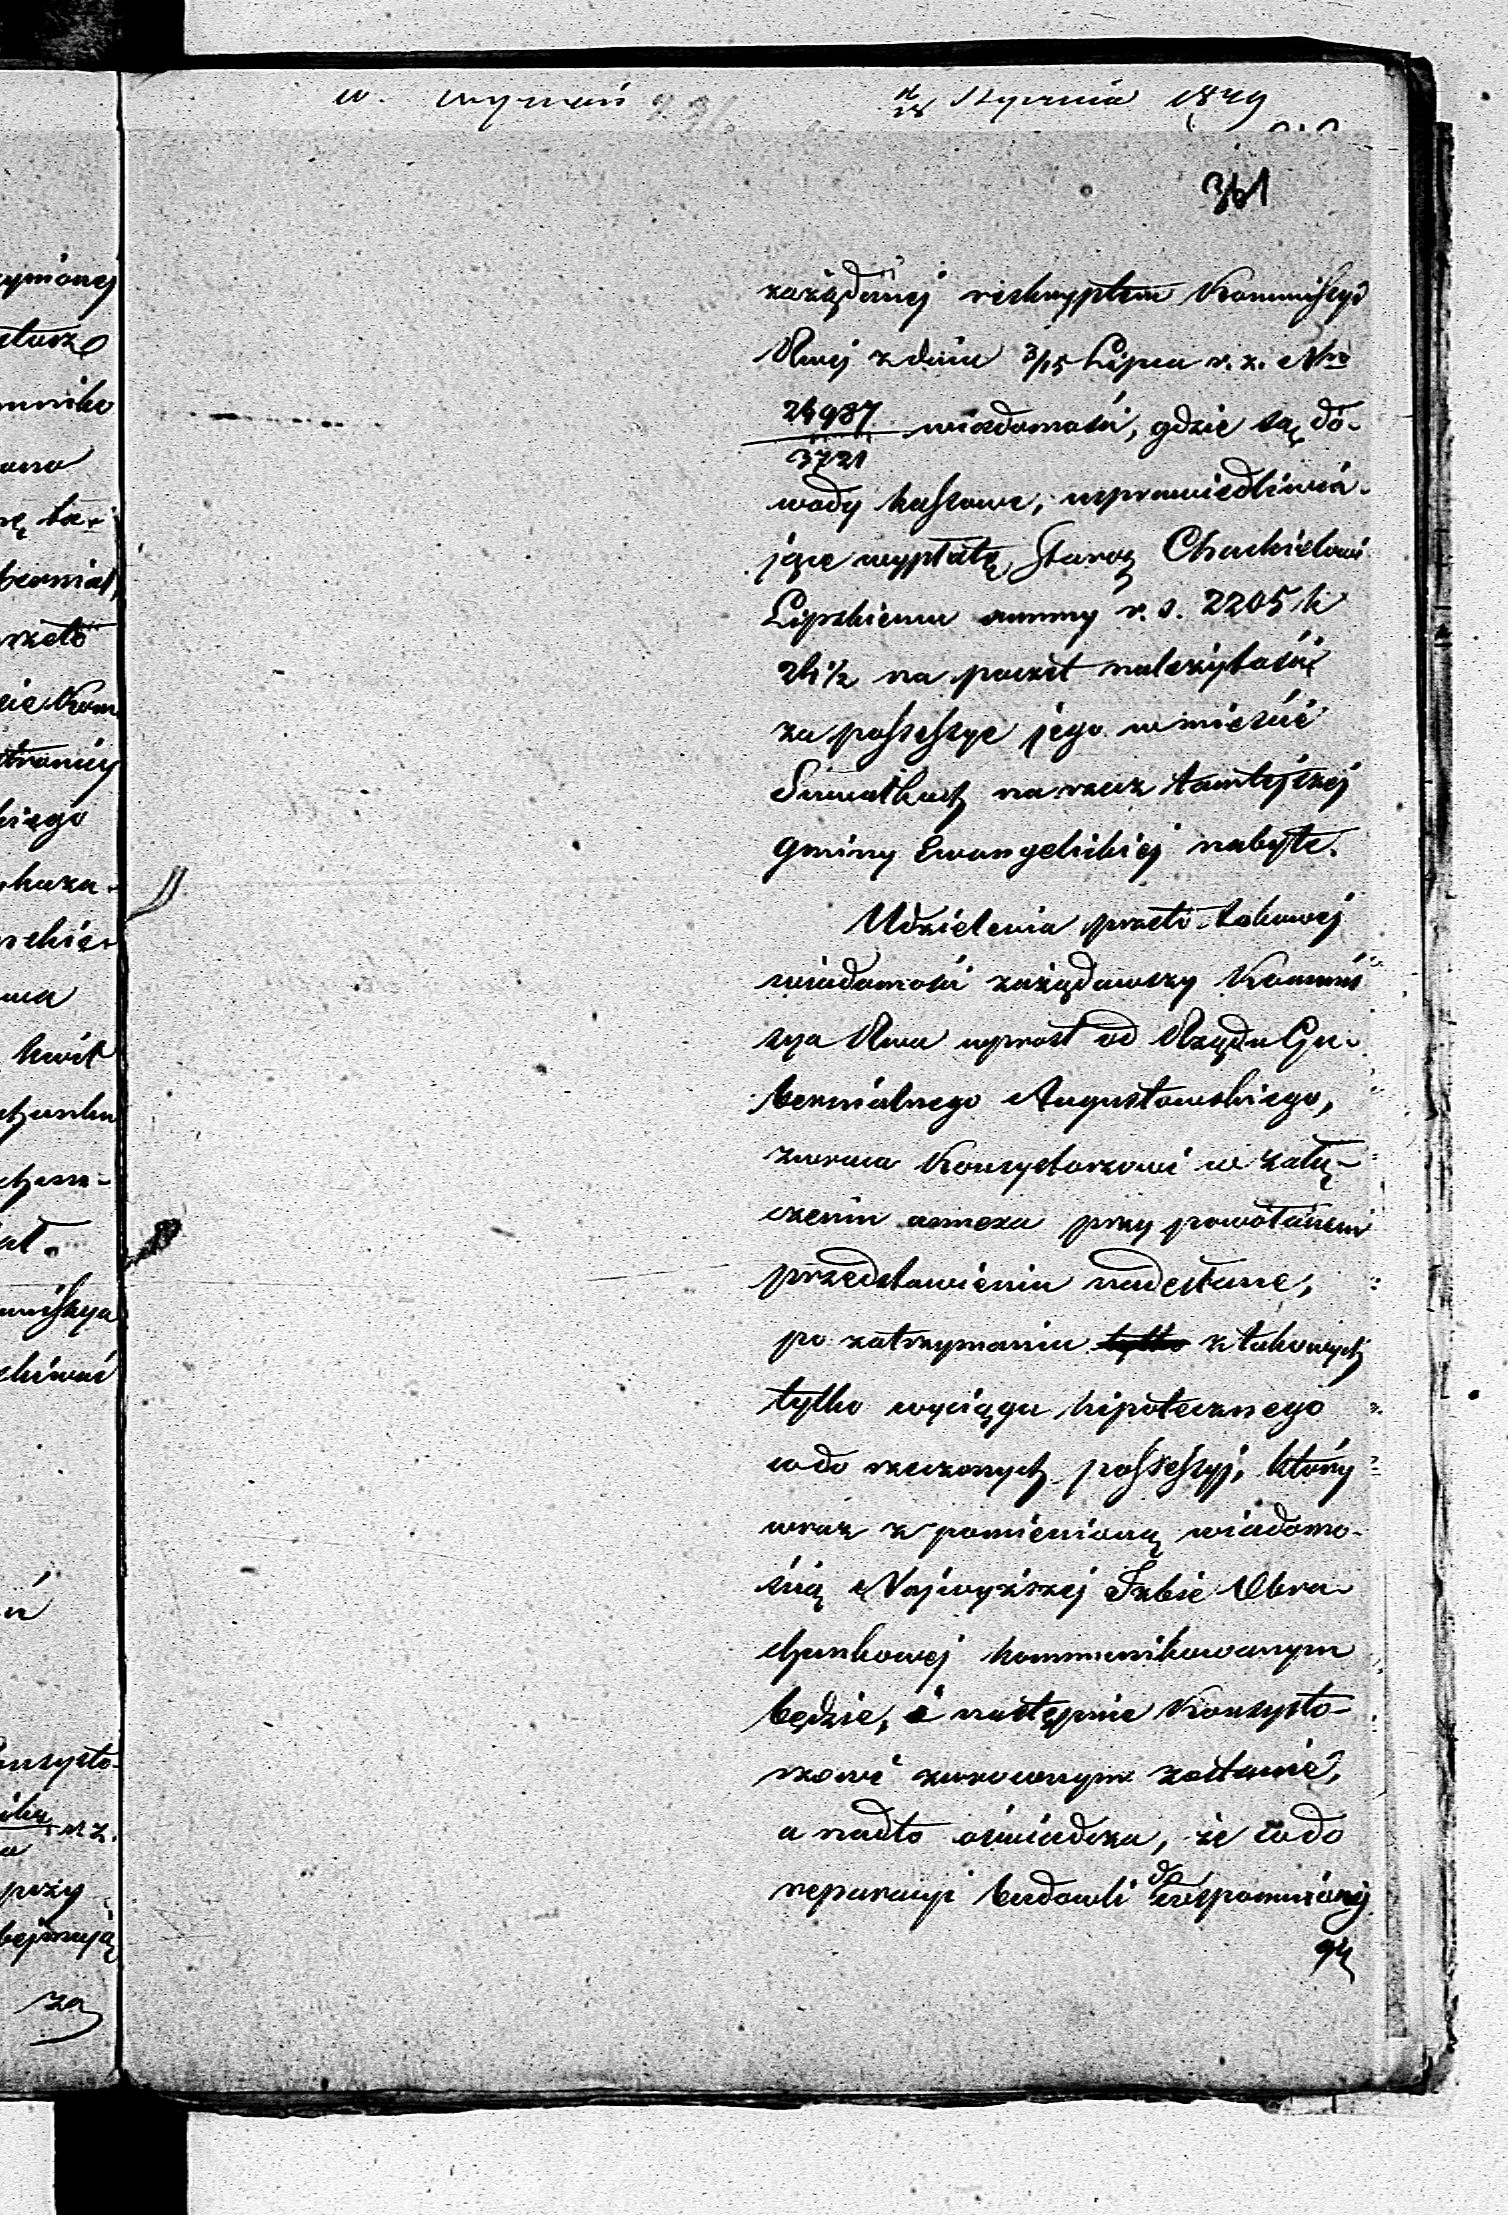 w. wyznań 16/28 Stycznia 1849
361
zażądanej reskryptem Kommissyi
Rwej z dnia 3/15 Lipca r. z. Nro
24937/3721 wiadomości, gdzie są do-
wody kassowe, usprawiedliwia-
jące wypłatę Staroz Chackielowi
Lipskiemu summy r. s. 2205 k
24½ na poczet należytości
za possessye jego w mieście
Suwałkach na rzecz tamtejszej
gminy Ewangelickiej nabyte.
Udzielenia przeto takowej
wiadomości zażądawszy Kommis
sya Rwa wprost od Rządu Gu-
bernialnego Augustowskiego,
zwraca Konsystorzowi w załą-
czeniu annexa przy powołanem
przedstawieniu nadesłane,
po zatrzymaniu tylko z takowych
tylko wyciągu hipotecznego
co do rzeczonych possessyj, który
wraz z pomienioną wiadomo-
ścią Najwyższej Izbie Obra-
chunkowej kommunikowanym
będzie, i następnie Konsysto-
rzowi zwróconym zostanie,
a nadto oświadcza, że co do
reparacyi budowli do wspomnionej
ych
ymionej
nniko
ono
bernial
rzeto
cie Kom
kiego
ykaza-
kwit
chunku
at.
mmissya
n
onsysto-
r z.
przy
bejmują
za